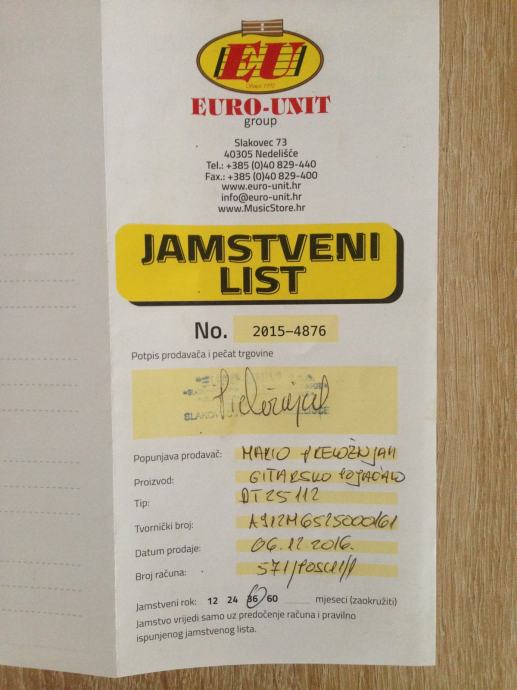 EU
EURO-UNIT
group
Slakovec 73
40305 Nedelišće
Tel.: +385 (0)40 829-440
Fax.: +385 (0)40 829-400
www.euro-unit.hr
info@euro-unit.hr
www.MusicStore.hr
JAMSTVENI
LIST
No. 2015-4876
Potpis prodavača i pečat trgovine
Popunjava prodavač: MARIO PRELOŽNJAK
Proizvod: GITARSKO POJAČALO
Tip: DT25 112
Tvornički broj:
Datum prodaje: 06.12 2016.
Broj računa:
Jamstveni rok: 12 24 36 60 mjeseci (zaokružiti)
Jamstvo vrijedi samo uz predočenje računa i pravilno
ispunjenog jamstvenog lista.